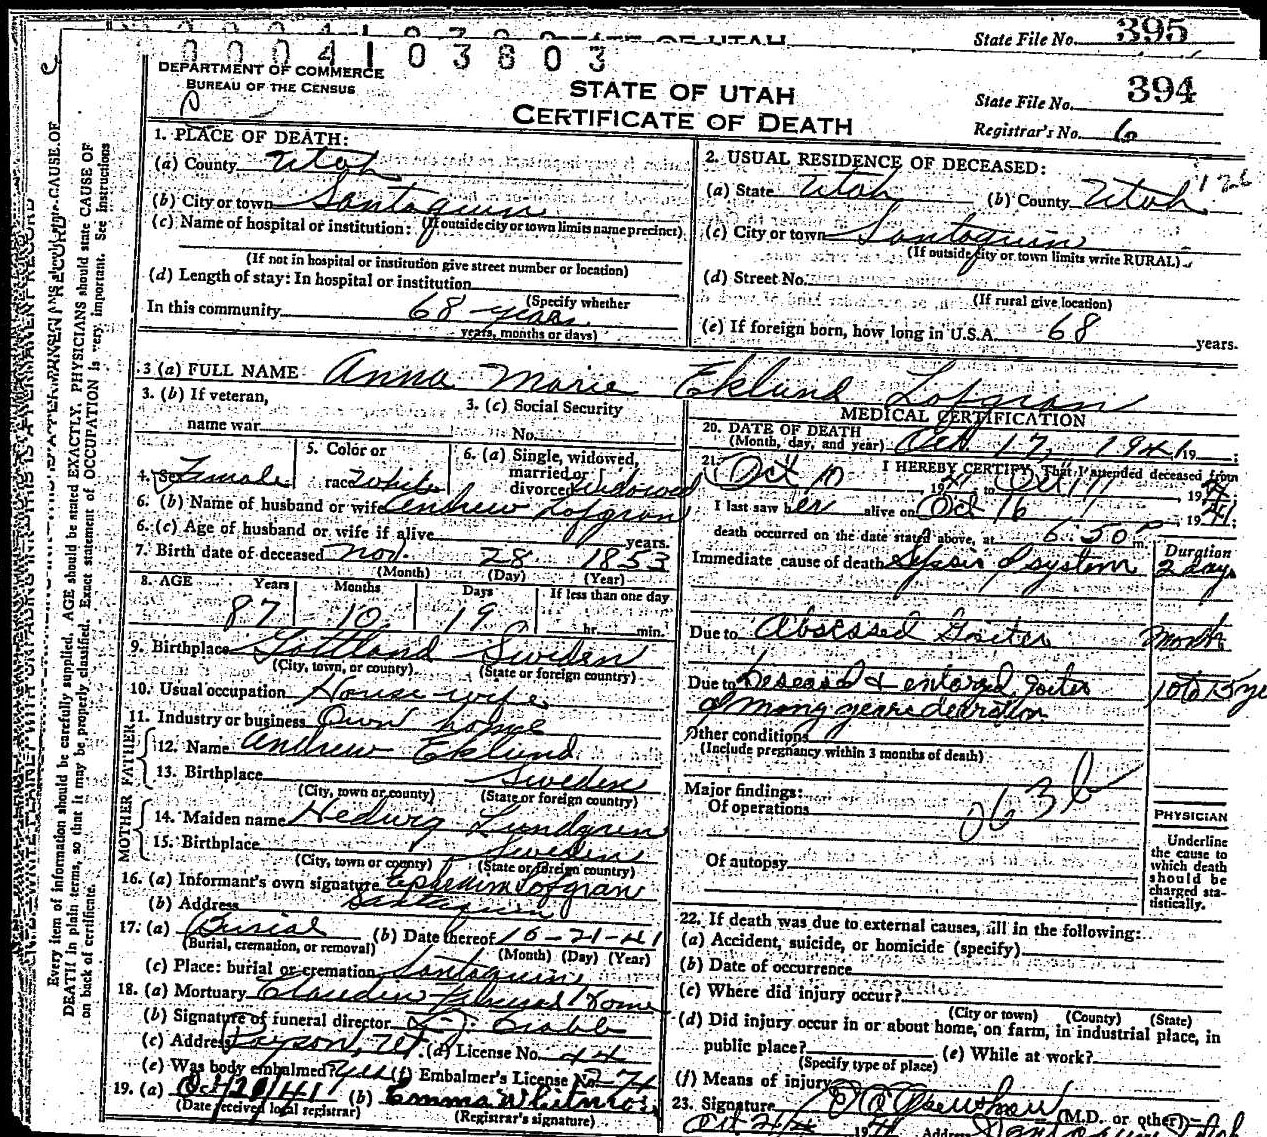 State File No. 395
0 0 0 4 1 0 3 8 0 3
STATE OF UTAH
DEPARTMENT OF COMMERCE
BUREAU OF THE CENSUS
STATE OF UTAH
CERTIFICATE OF DEATH
State File No. 394
Registrar's No. 6
1. PLACE OF DEATH:
(a) County Utah
(b) City or town Santaquin
(c) Name of hospital or institution: (If outside city or town limits name precinct)
(If not in hospital or institution give street number or location)
(d) Length of stay: In hospital or institution
(Specify whether
In this community 68 years
years, months or days)
2. USUAL RESIDENCE OF DECEASED:
(a) State Utah (b) County Utah
(c) City or town Santaquin
(If outside city or town limits write RURAL)
(d) Street No.
(If rural give location)
(e) If foreign born, how long in U.S.A. 68 years.
3 (a) FULL NAME Anna Marie Eklund Lofgran
3. (b) If veteran,
name war
3. (c) Social Security
No.
4. Sex Female
5. Color or
race White
6. (a) Single, widowed,
married or
divorced Widowed
6. (b) Name of husband or wife Andrew Lofgran
6. (c) Age of husband or wife if alive years.
7. Birth date of deceased Nov. 28 1853
(Month) (Day) (Year)
8. AGE Years Months Days If less than one day
87 10 19 hr. min.
9. Birthplace Gottland Sweden
(City, town, or county) (State or foreign country)
10. Usual occupation House wife
11. Industry or business Own home
FATHER
12. Name Andrew Eklund
13. Birthplace Sweden
(City, town or county) (State or foreign country)
MOTHER
14. Maiden name Hedwig Lundgren
15. Birthplace Sweden
(City, town or county) (State or foreign country)
16. (a) Informant's own signature Ephraim Lofgran
(b) Address Santaquin
17. (a) Burial (b) Date thereof 10-21-41
(Burial, cremation, or removal) (Month) (Day) (Year)
(c) Place: burial or cremation Santaquin
18. (a) Mortuary Home
(b) Signature of funeral director
(c) Address Payson, Ut. (d) License No. 44
(e) Was body embalmed? yes (f) Embalmer's License No. 274
19. (a) Oct/20/41 (b) Emma
(Date received local registrar) (Registrar's signature)
MEDICAL CERTIFICATION
20. DATE OF DEATH
(Month, day, and year) Oct. 17, 1941 19
21. I HEREBY CERTIFY, That I attended deceased from
Oct 10, 1941 to Oct 17 1941;
I last saw her alive on Oct 16, 1941;
death occurred on the date stated above, at 6:50 P m.
Duration
Immediate cause of death Sepsis of system 2 days
Due to Abscessed Goiter month
Due to Deseased & enlarged goiter 10 to 15 ye
of many years
Other conditions
(Include pregnancy within 3 months of death)
Major findings:
Of operations
063b
Of autopsy
PHYSICIAN
Underline
the cause to
which death
should be
charged sta-
tistically.
22. If death was due to external causes, fill in the following:
(a) Accident, suicide, or homicide (specify)
(b) Date of occurrence
(c) Where did injury occur?
(City or town) (County) (State)
(d) Did injury occur in or about home, on farm, in industrial place, in
public place? (e) While at work?
(Specify type of place)
(f) Means of injury
23. Signature (M.D. or other)
19 41 Address
Every item of information should be carefully supplied. AGE should be stated EXACTLY. PHYSICIANS should state CAUSE OF
DEATH in plain terms, so that it may be properly classified. Exact statement of OCCUPATION is very important. See Instructions
on back of certificate.